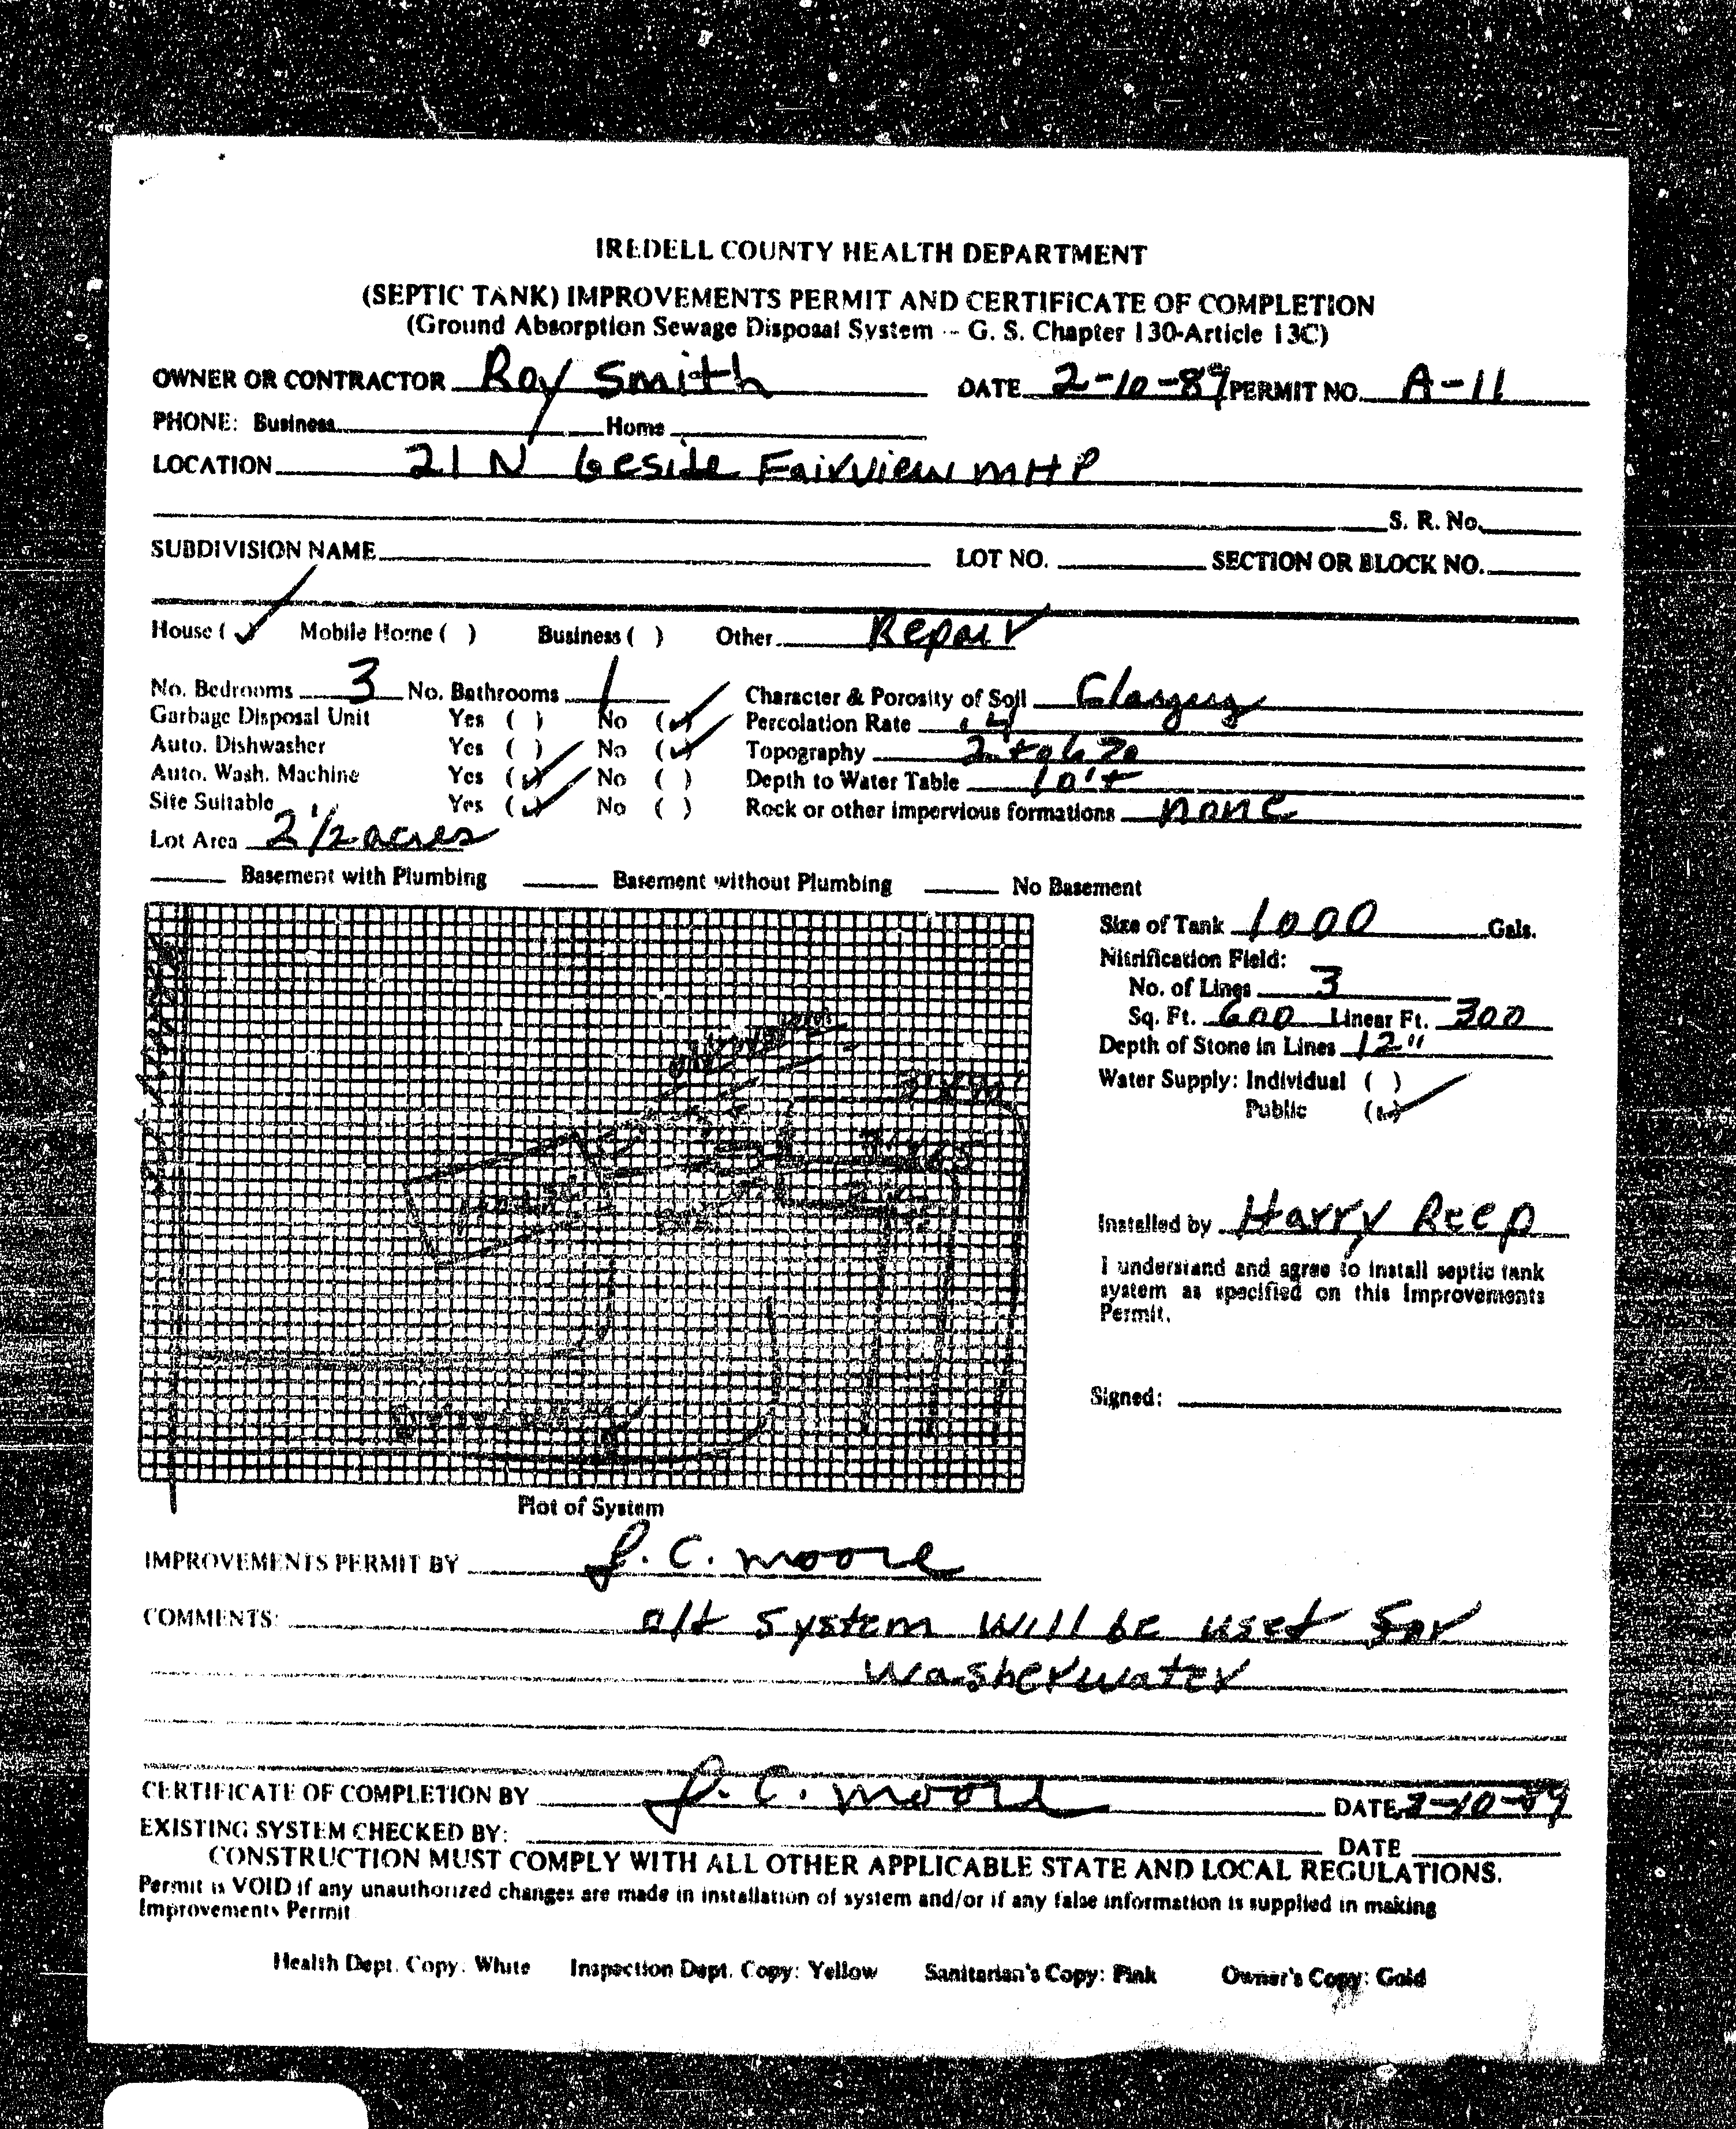 IREDELL COUNTY HEALTH DEPARTMENT
(SEPTIC TANK) IMPROVEMENTS PERMIT AND CERTIFICATE OF COMPLETION
(Ground Absorption Sewage Disposal System -- G. S. Chapter 130-Article 13C)
OWNER OR CONTRACTOR Ray Smith DATE 2-10-89 PERMIT NO. A-11
PHONE: Business Home
LOCATION 21 N beside Fairview MHP
S. R. No.
SUBDIVISION NAME LOT NO. SECTION OR BLOCK NO.
House (✓) Mobile Home ( ) Business ( ) Other Repair
No. Bedrooms 3 No. Bathrooms 1 Character & Porosity of Soil
Garbage Disposal Unit Yes ( ) No (✓) Percolation Rate .4
Auto. Dishwasher Yes ( ) No (✓) Topography
Auto. Wash. Machine Yes (✓) No ( ) Depth to Water Table 10'+
Site Suitable Yes (✓) No ( ) Rock or other impervious formations none
Lot Area 2 1/2 acres
Basement with Plumbing Basement without Plumbing No Basement
Size of Tank 1000 Gals.
Nitrification Field:
No. of Lines 3
Sq. Ft. 600 Linear Ft. 300
Depth of Stone in Lines 12"
Water Supply: Individual ( )
Public (✓)
Installed by Harry Reep
I understand and agree to install septic tank
system as specified on this Improvements
Permit.
Signed:
Plot of System
IMPROVEMENTS PERMIT BY J. C. Moore
COMMENTS: old system will be used for
washerwater
CERTIFICATE OF COMPLETION BY J. C. Moore DATE 2-10-89
EXISTING SYSTEM CHECKED BY: DATE
CONSTRUCTION MUST COMPLY WITH ALL OTHER APPLICABLE STATE AND LOCAL REGULATIONS.
Permit is VOID if any unauthorized changes are made in installation of system and/or if any false information is supplied in making
Improvements Permit
Health Dept. Copy: White Inspection Dept. Copy: Yellow Sanitarian's Copy: Pink Owner's Copy: Gold